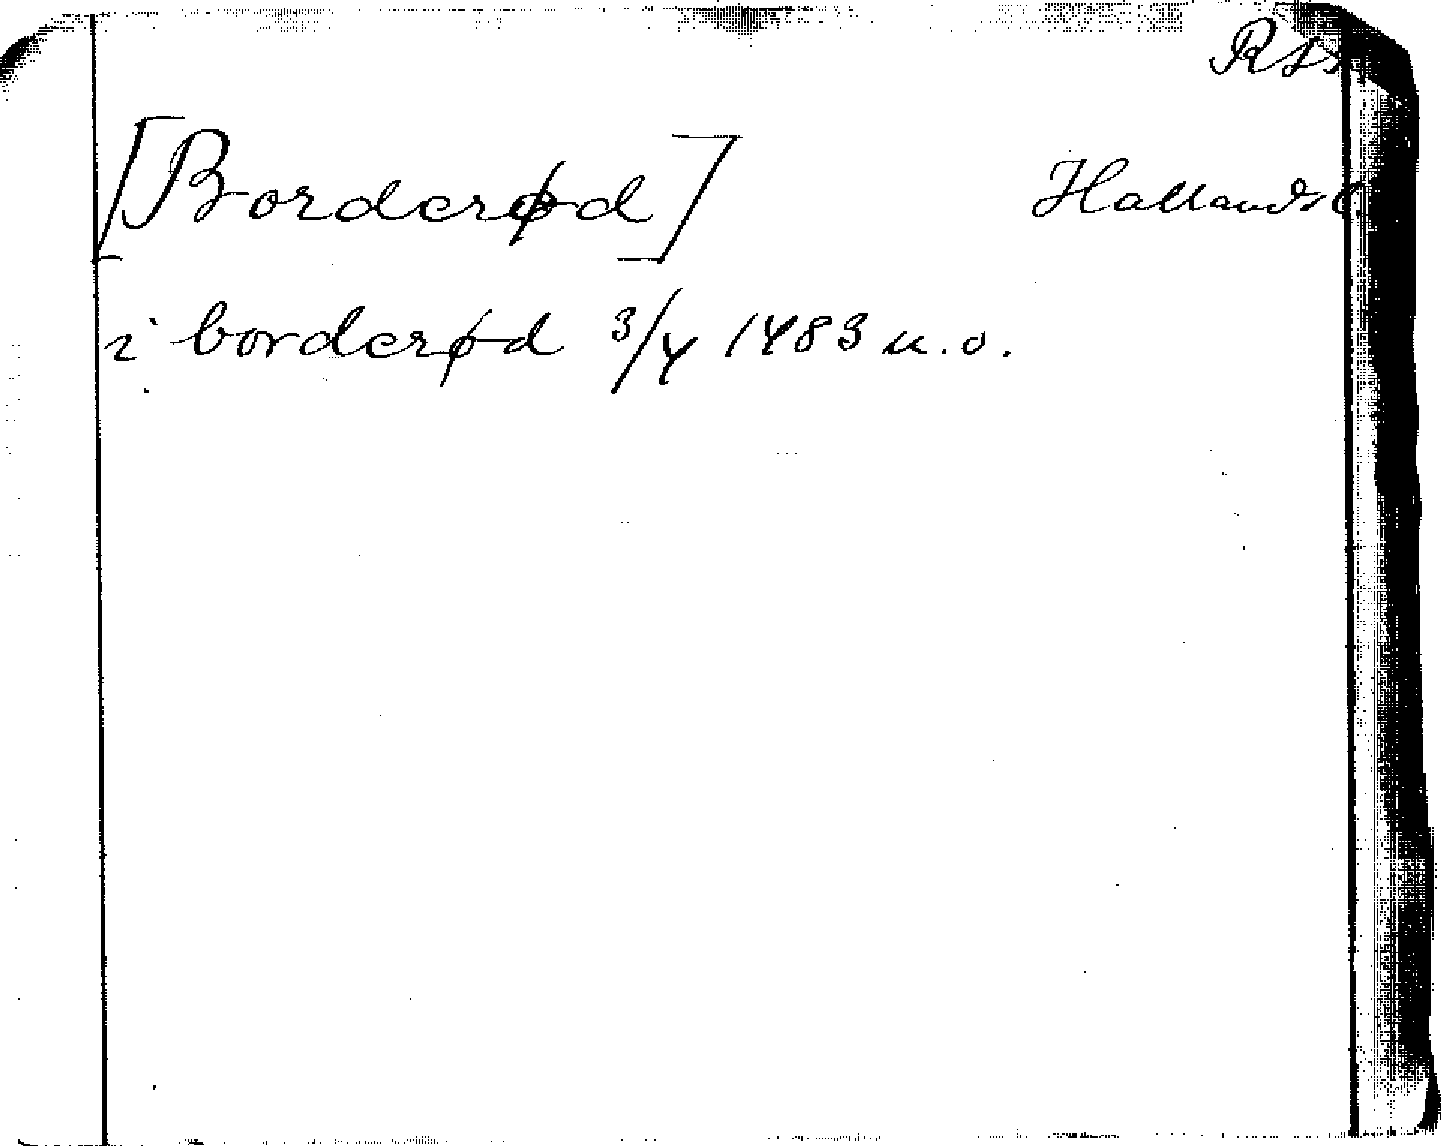 [Borderød] Hallands
i borderød 3/4 1483 u.o.